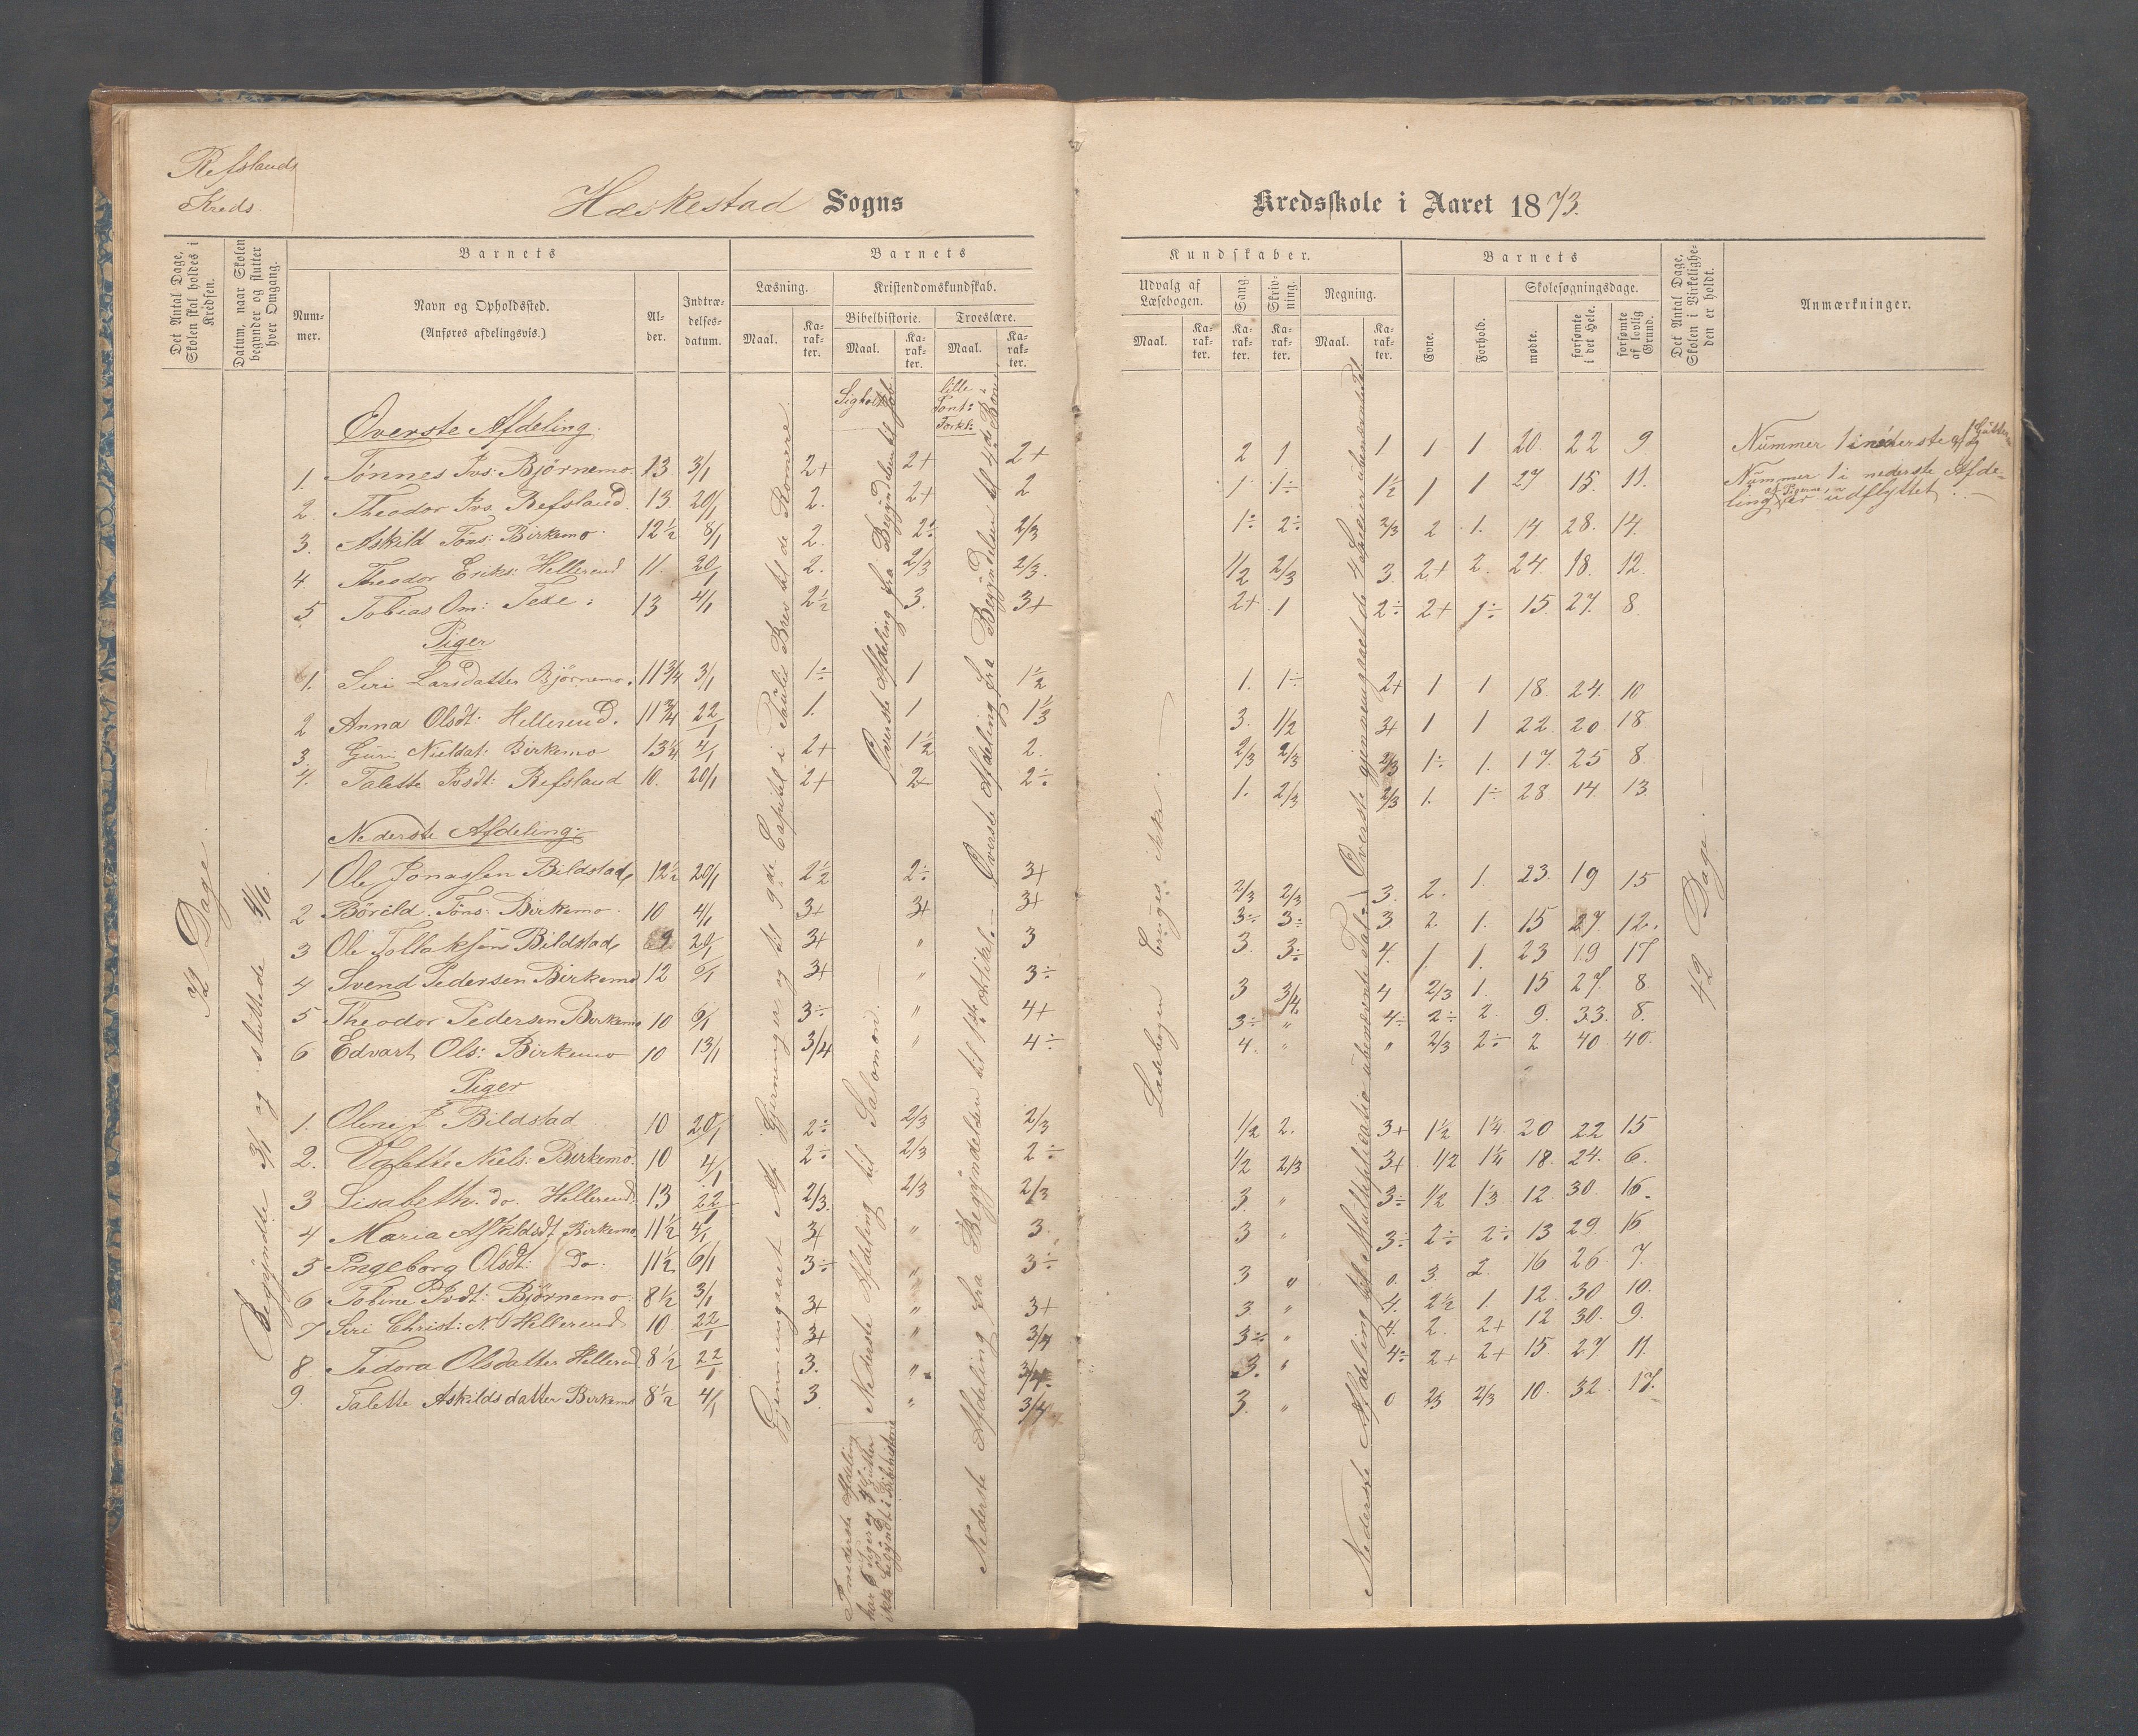 Refslands
Kreds.
Heskestad Sogns
Kredsskole i Aaret 1873.
Det Antal Dage, Skolen skal holdes i Kredsen.
Datum, naar Skolen begynder og slutter hver Omgang.
Barnets
Barnets
Num-mer.
Navn og Opholdssted.
(Anføres afdelingsvis.)
Al-der.
Indtræ-delses-datum.
Læsning.
Kristendomskundskab.
Bibelhistorie.
Troeslære.
Maal.
Ka-rak-ter.
Maal.
Ka-rak-ter.
Maal.
Ka-rak-ter.
Kundskaber.
Barnets
Udvalg af Læsebogen.
Sang.
Skriv-ning.
Regning.
Evne.
Forhold.
Skolesøgningsdage.
Det Antal Dage, Skolen i Virkelighe-den er holdt.
Anmærkninger.
Maal.
Ka-rak-ter.
Ka-rak-ter.
Ka-rak-ter.
Maal.
Ka-rak-ter.
mødte.
forsømte i det Hele.
forsømte af lovlig Grund.
42 Dage.
Begyndte 3/1 og sluttede 4/6.
Gjennemgaaet Af Gjerninger og til 9de Capitel i Pauli Brev til de Romere.
Overste Afdeling fra Begyndelsen til Job
Nederste Afdeling til Salomon
I nederste Afdeling
har 6 Piger og 4 Gutter
ikke begyndt i Bibelhistorie
Overste Afdeling fra Begyndelsen til 4de Bøn
Nederste Afdeling fra Begyndelsen til 1ste Artikel.
Læsebogen bruges ikke.
Overste gjennemgaaet de 4 Species i ubenævnte Tal
Nederste Afdeling til Multiplicatio i ubenævnte Tal
42 Dage.
Overste Afdeling.
1. Tønnes Ivs: Bjørnemo. 13. 3/1 2+ 2+ 2+ 2 1 1 1 1 20. 22 9.
2. Theodor Ivs. Refsland. 13. 20/1 2. 2+ 2 1 1÷ 1½ 1 1 27 15. 11.
3. Askild Töns: Birkemo. 12½ 8/1 2. 2÷ 2/3 1÷ 2÷ 2/3 2 1. 14. 28. 14.
4. Theodor Eriks: Hellerend 11. 20/1 2. 2/3 2/3. 1/2 2/3 3. 2+ 2. 24. 18. 12.
5 Tobias Om: Texe. 13 4/1 2½ 3. 3+ 2+ 1 2÷ 2+ 1÷ 15. 27. 8.
Piger
1. Siri Larsdatter Bjørnemo. 11¾ 3/1 1÷ 1 1½ 1. 1÷ 2+ 1 1 18. 24. 10
2 Anna Olsdt: Hellerend. 11¾ 22/1 1. 1 1⅓ 3. 1/2 3+ 1 1 22. 20 18.
3. Guri Nielsdt: Birkemo 13¼ 4/1 2+ 1½ 2. 2/3 2/3 2/3 1÷ 1. 17. 25 8.
4. Talette Ivsdt: Refsland 10. 20/1 2+ 2+ 2÷ 1. 2/3 2/3 1. 1÷ 28 14. 13.
Nederste Afdeling.
1 Ole Jonassen Bildstad 12½ 20/1 2½ 2÷ 3+ 2/3 2/3 3. 2. 1. 23. 19 15
2 Böreld. Töns: Birkemo. 10 4/1 3+ 3+ 3+ 3÷ 3÷ 3. 2 1. 15 27. 12.
3 Ole Tollaksen Bildstad 9 20/1 3+ " 3 3. 3÷ 4. 1 1. 23 19 17
4 Svend Pedersen Birkemo 12 6/1 3+ " 3÷ 3 3/4 4 2/3 1. 15 27. 8
5 Theodor Pedersen Birkemo 10 6/1 3÷ " 4+ 3÷ " 4÷ 2÷ 2. 9. 33. 8.
6 Edvart Ols: Birkemo 10 13/1 3/4 " 4÷ 4. " " 2/3 2÷ 2 40 40.
Piger
1. Oline J Bildstad 10 20/1 2÷ 2/3 2/3 1/2 2. 3+ 1½ 1¼ 20 22 15
2. Valette Niels: Birkemo. 10 4/1 2÷ 2/3 2÷ 1/2 2/3 3+ 1/2 1¼ 18. 24. 6.
3 Lisabeth. do. Hellerend. 13 22/1 2/3. 2/3 2/3 3. " 3÷ 1/2 1⅓ 12. 30. 16.
4 Maria Askildsdt Birkemo 11½ 4/1 3+ " 3. 3 " 3÷ 2÷ 2÷ 13 29. 15
5 Ingeborg Olsdt: do. 11½ 6/1 3÷ " 3÷ 3 " 0. 3 2. 16 26 7.
6 Tobine Ivdt: Bjørnemo. 8½ 3/1 3+ " 3+ 3 " 4. 2½ 1. 12. 30 10.
7 Siri Christ: N. Hellerend 10 22/1 3+ " 3/4 3÷ " 4. 2. 2+ 12 30. 9.
8. Tidora Olsdatter Hellerend. 8½ 22/1 3. " 3/4 3. " 4÷ 2+ 2+ 15 27. 11.
9. Talette Askildsdatter Birkemo 8½ 4/1 3. " 3/4 3. " 0 2/3 2/3 10. 32. 17.
Nummer 1 i nederste af Gutterne
Nummer 1 i nederste Afde-
ling af Pigerne, er udflyttet.